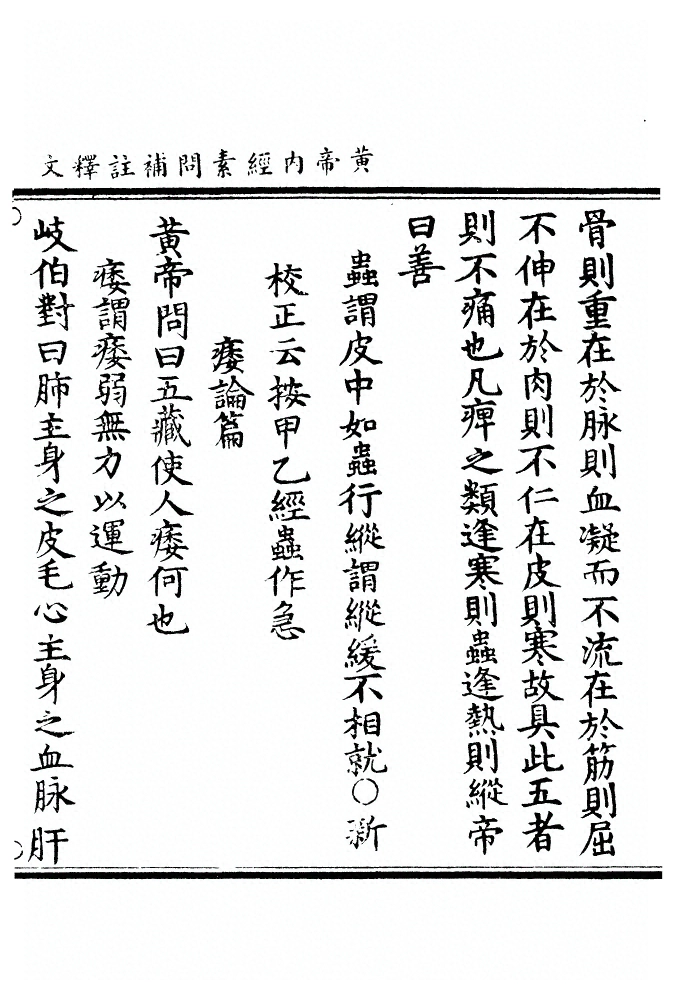 黃帝內經素問補註釋文
骨則重在於脉則血凝而不流在於筋則屈
不伸在於肉則不仁在皮則寒故具此五者
則不痛也凡痺之類逢寒則蟲逢熱則縱帝
曰善
蟲謂皮中如蟲行縱謂縱緩不相就○新
校正云按甲乙經蟲作急
痿論篇
黃帝問曰五藏使人痿何也
痿謂痿弱無力以運動
岐伯對曰肺主身之皮毛心主身之血脉肝